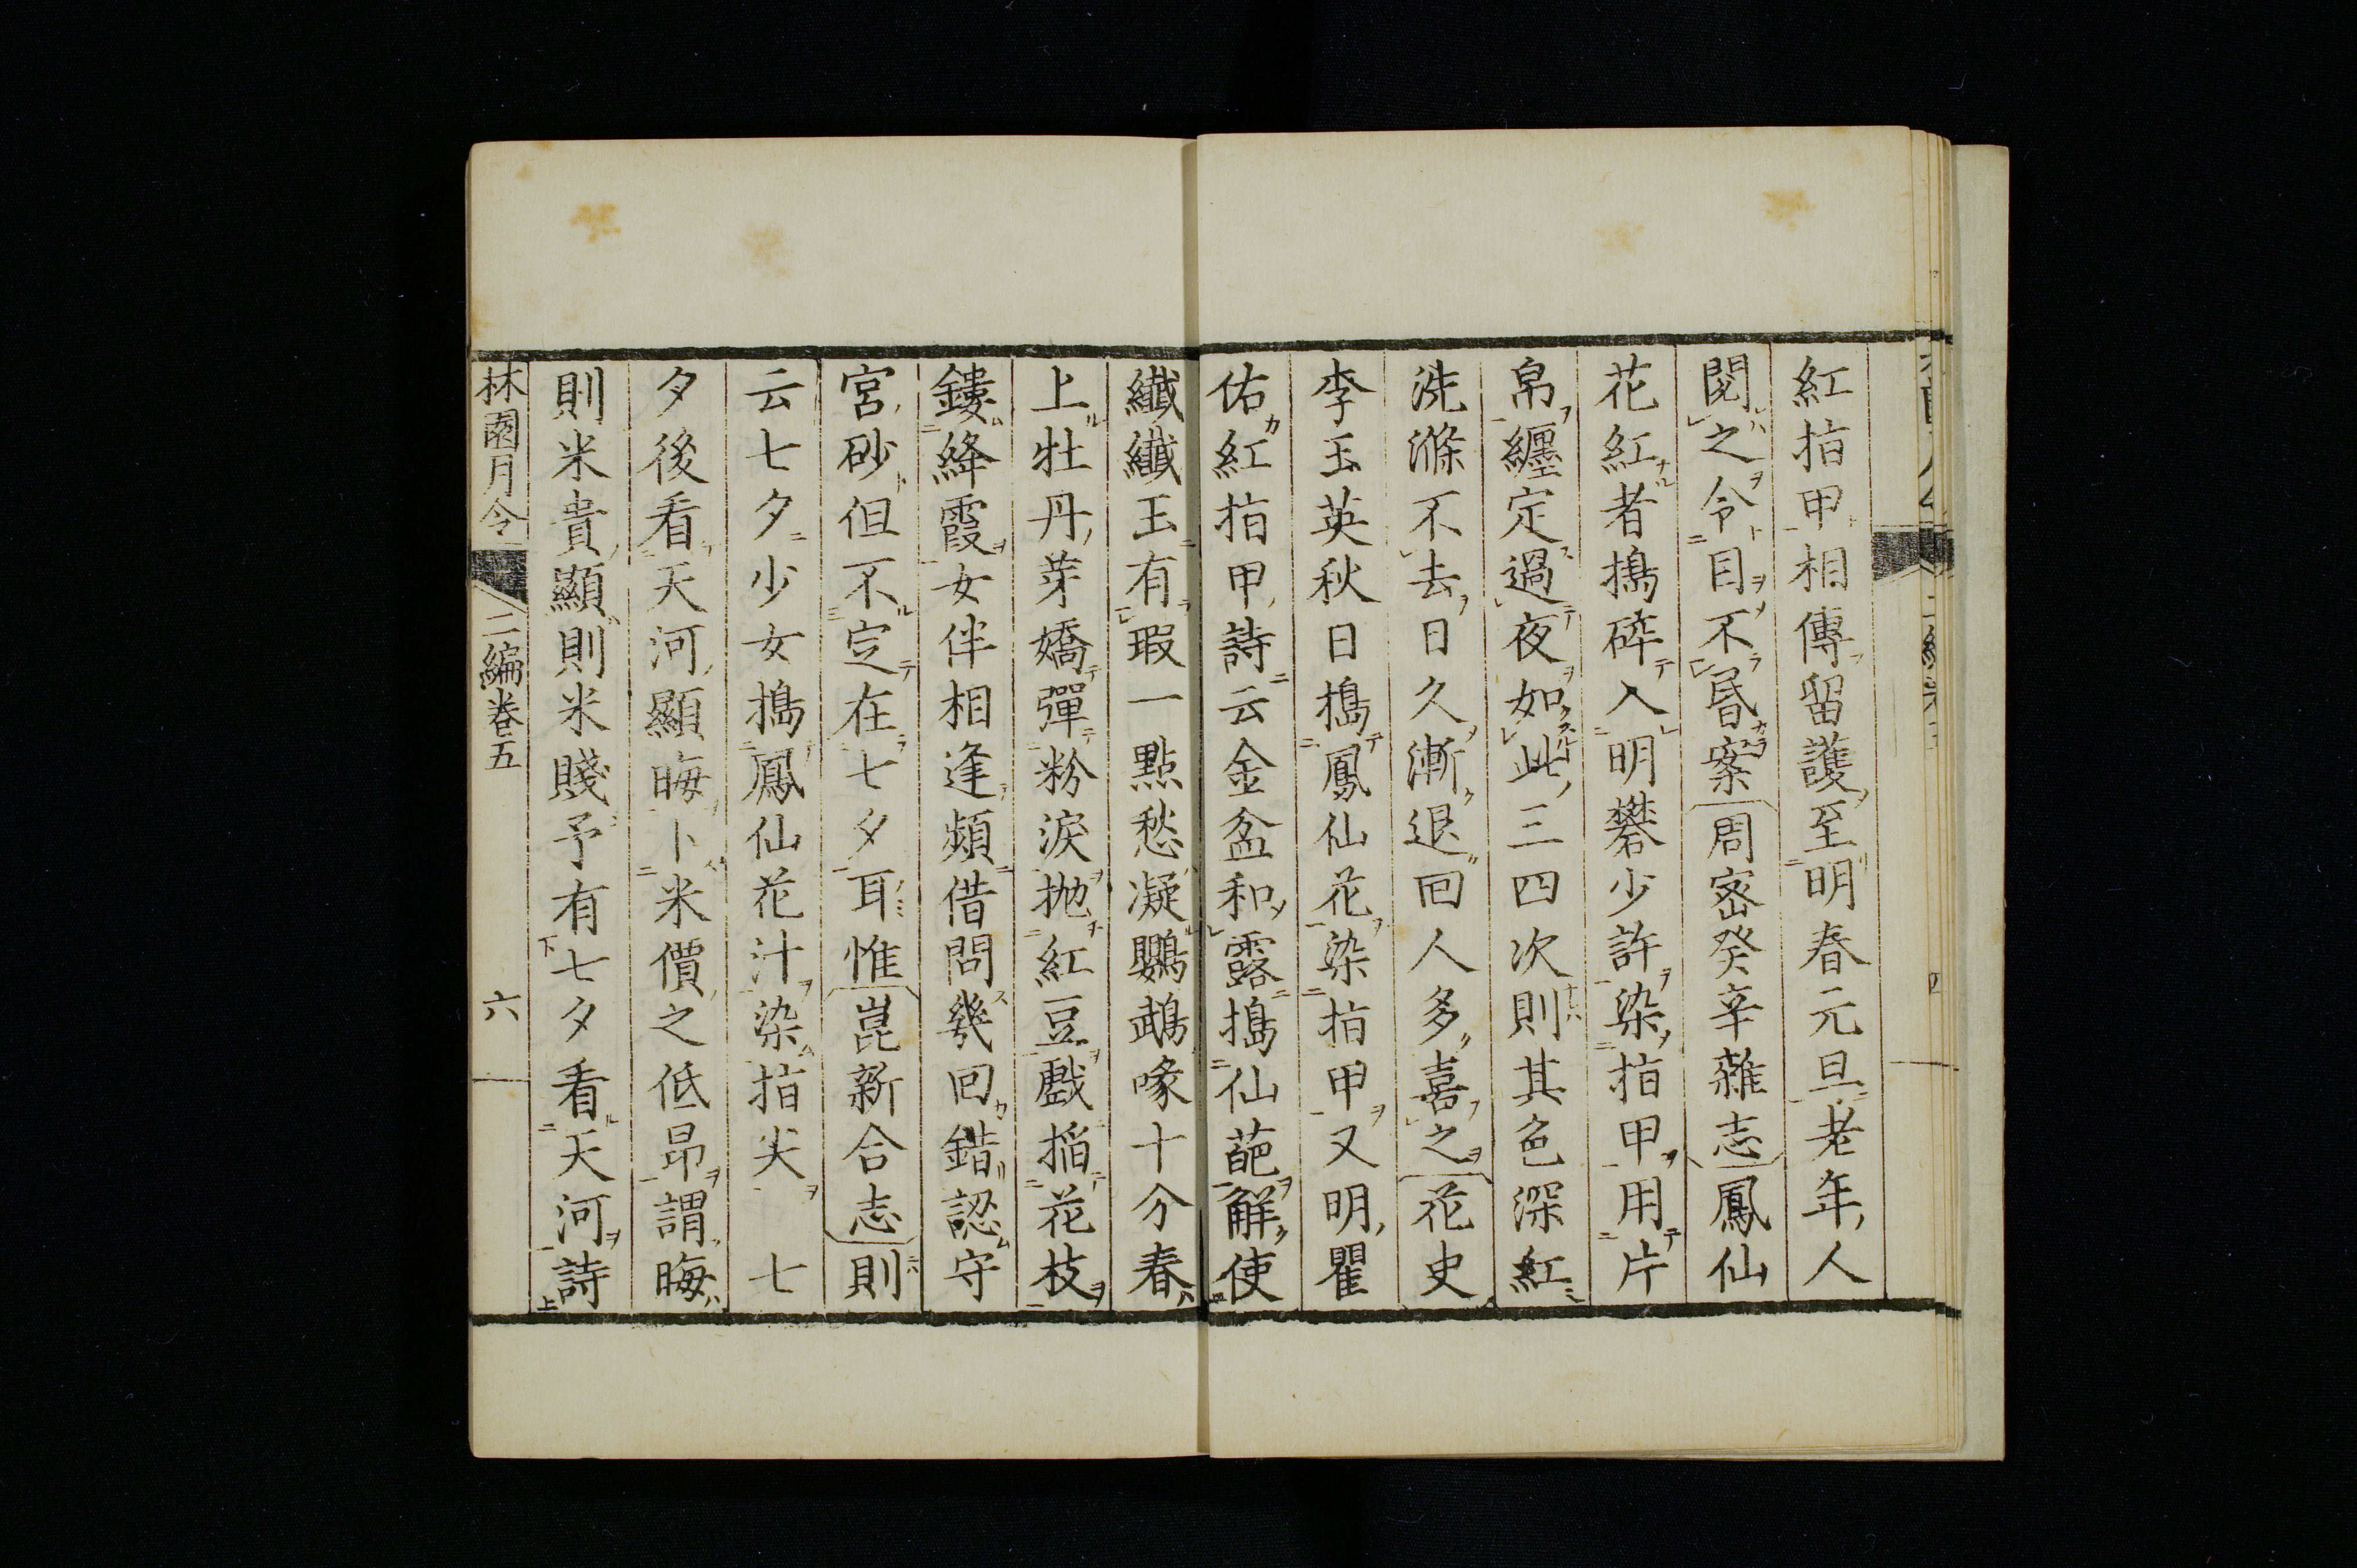 紅指甲相傳留護至明春元旦老年人
閱之令目不昏案周宻癸辛雜志鳳仙
花紅者搗碎入明礬少許染指甲用片
帛纏定過夜如此三四次則其色深紅
洗滌不去日久漸退回人多喜之花史
李玉英秋日搗鳳仙花染指甲又明瞿
佑紅指甲詩云金盆和露搗仙葩解使
纖纖玉有瑕一點愁凝鸚鵡喙十分春
上牡丹芽嬌彈粉淚抛紅豆戲掐花枝
鏤絳霞女伴相逢頻借問幾回錯認守
宮砂但不定在七夕耳惟崑新合志則
云七夕少女搗鳳仙花汁染指尖 七
夕後看天河顯晦卜米價之低昂謂晦
則米貴顯則米賤予有七夕看天河詩
林園月令 二編卷五 六